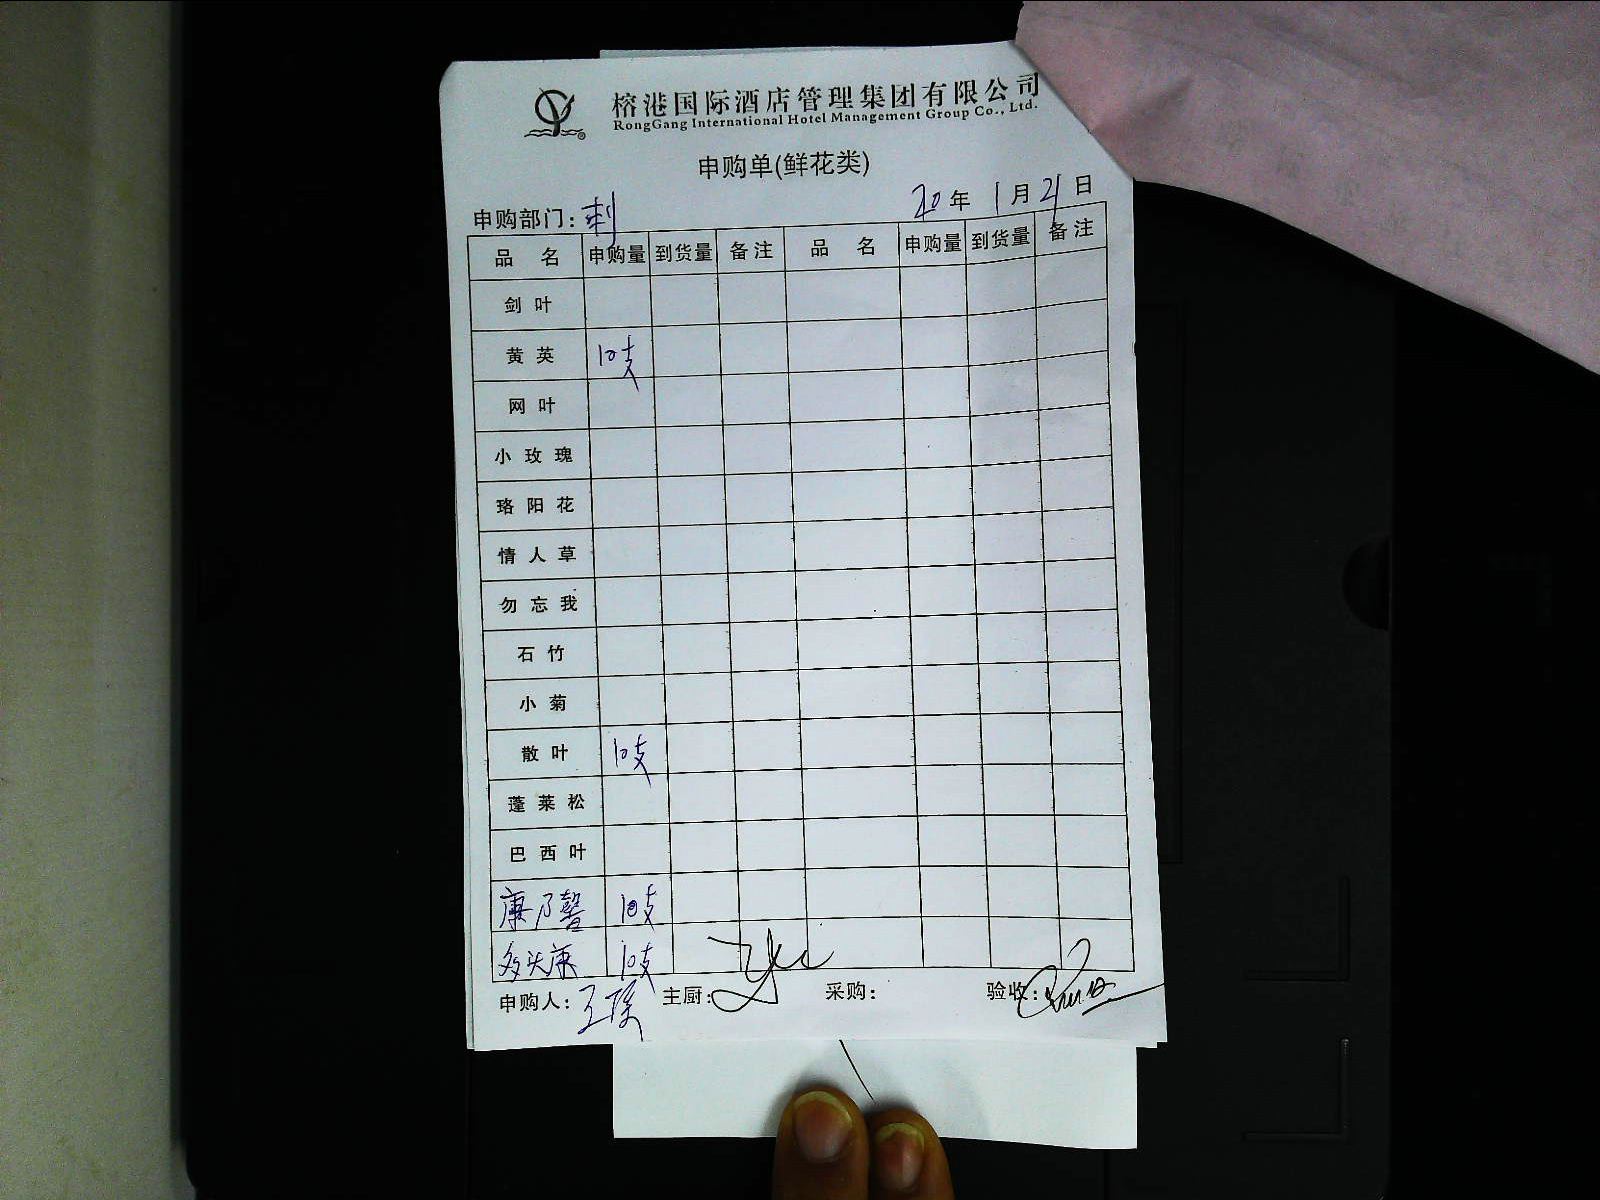 榕港国际酒店管理集团有限公司
RongGang International Hotel Management Group Co., Ltd.
申购单(鲜花类)
申购部门: 刺 20 年 1 月 21 日
品 名 申购量 到货量 备注 品 名 申购量 到货量 备注
剑叶
黄英 10支
网叶
小玫瑰
珞阳花
情人草
勿忘我
石竹
小菊
散叶 10支
蓬莱松
巴西叶
康乃馨 10支
多头康 10支
申购人: 主厨: 采购: 验收: